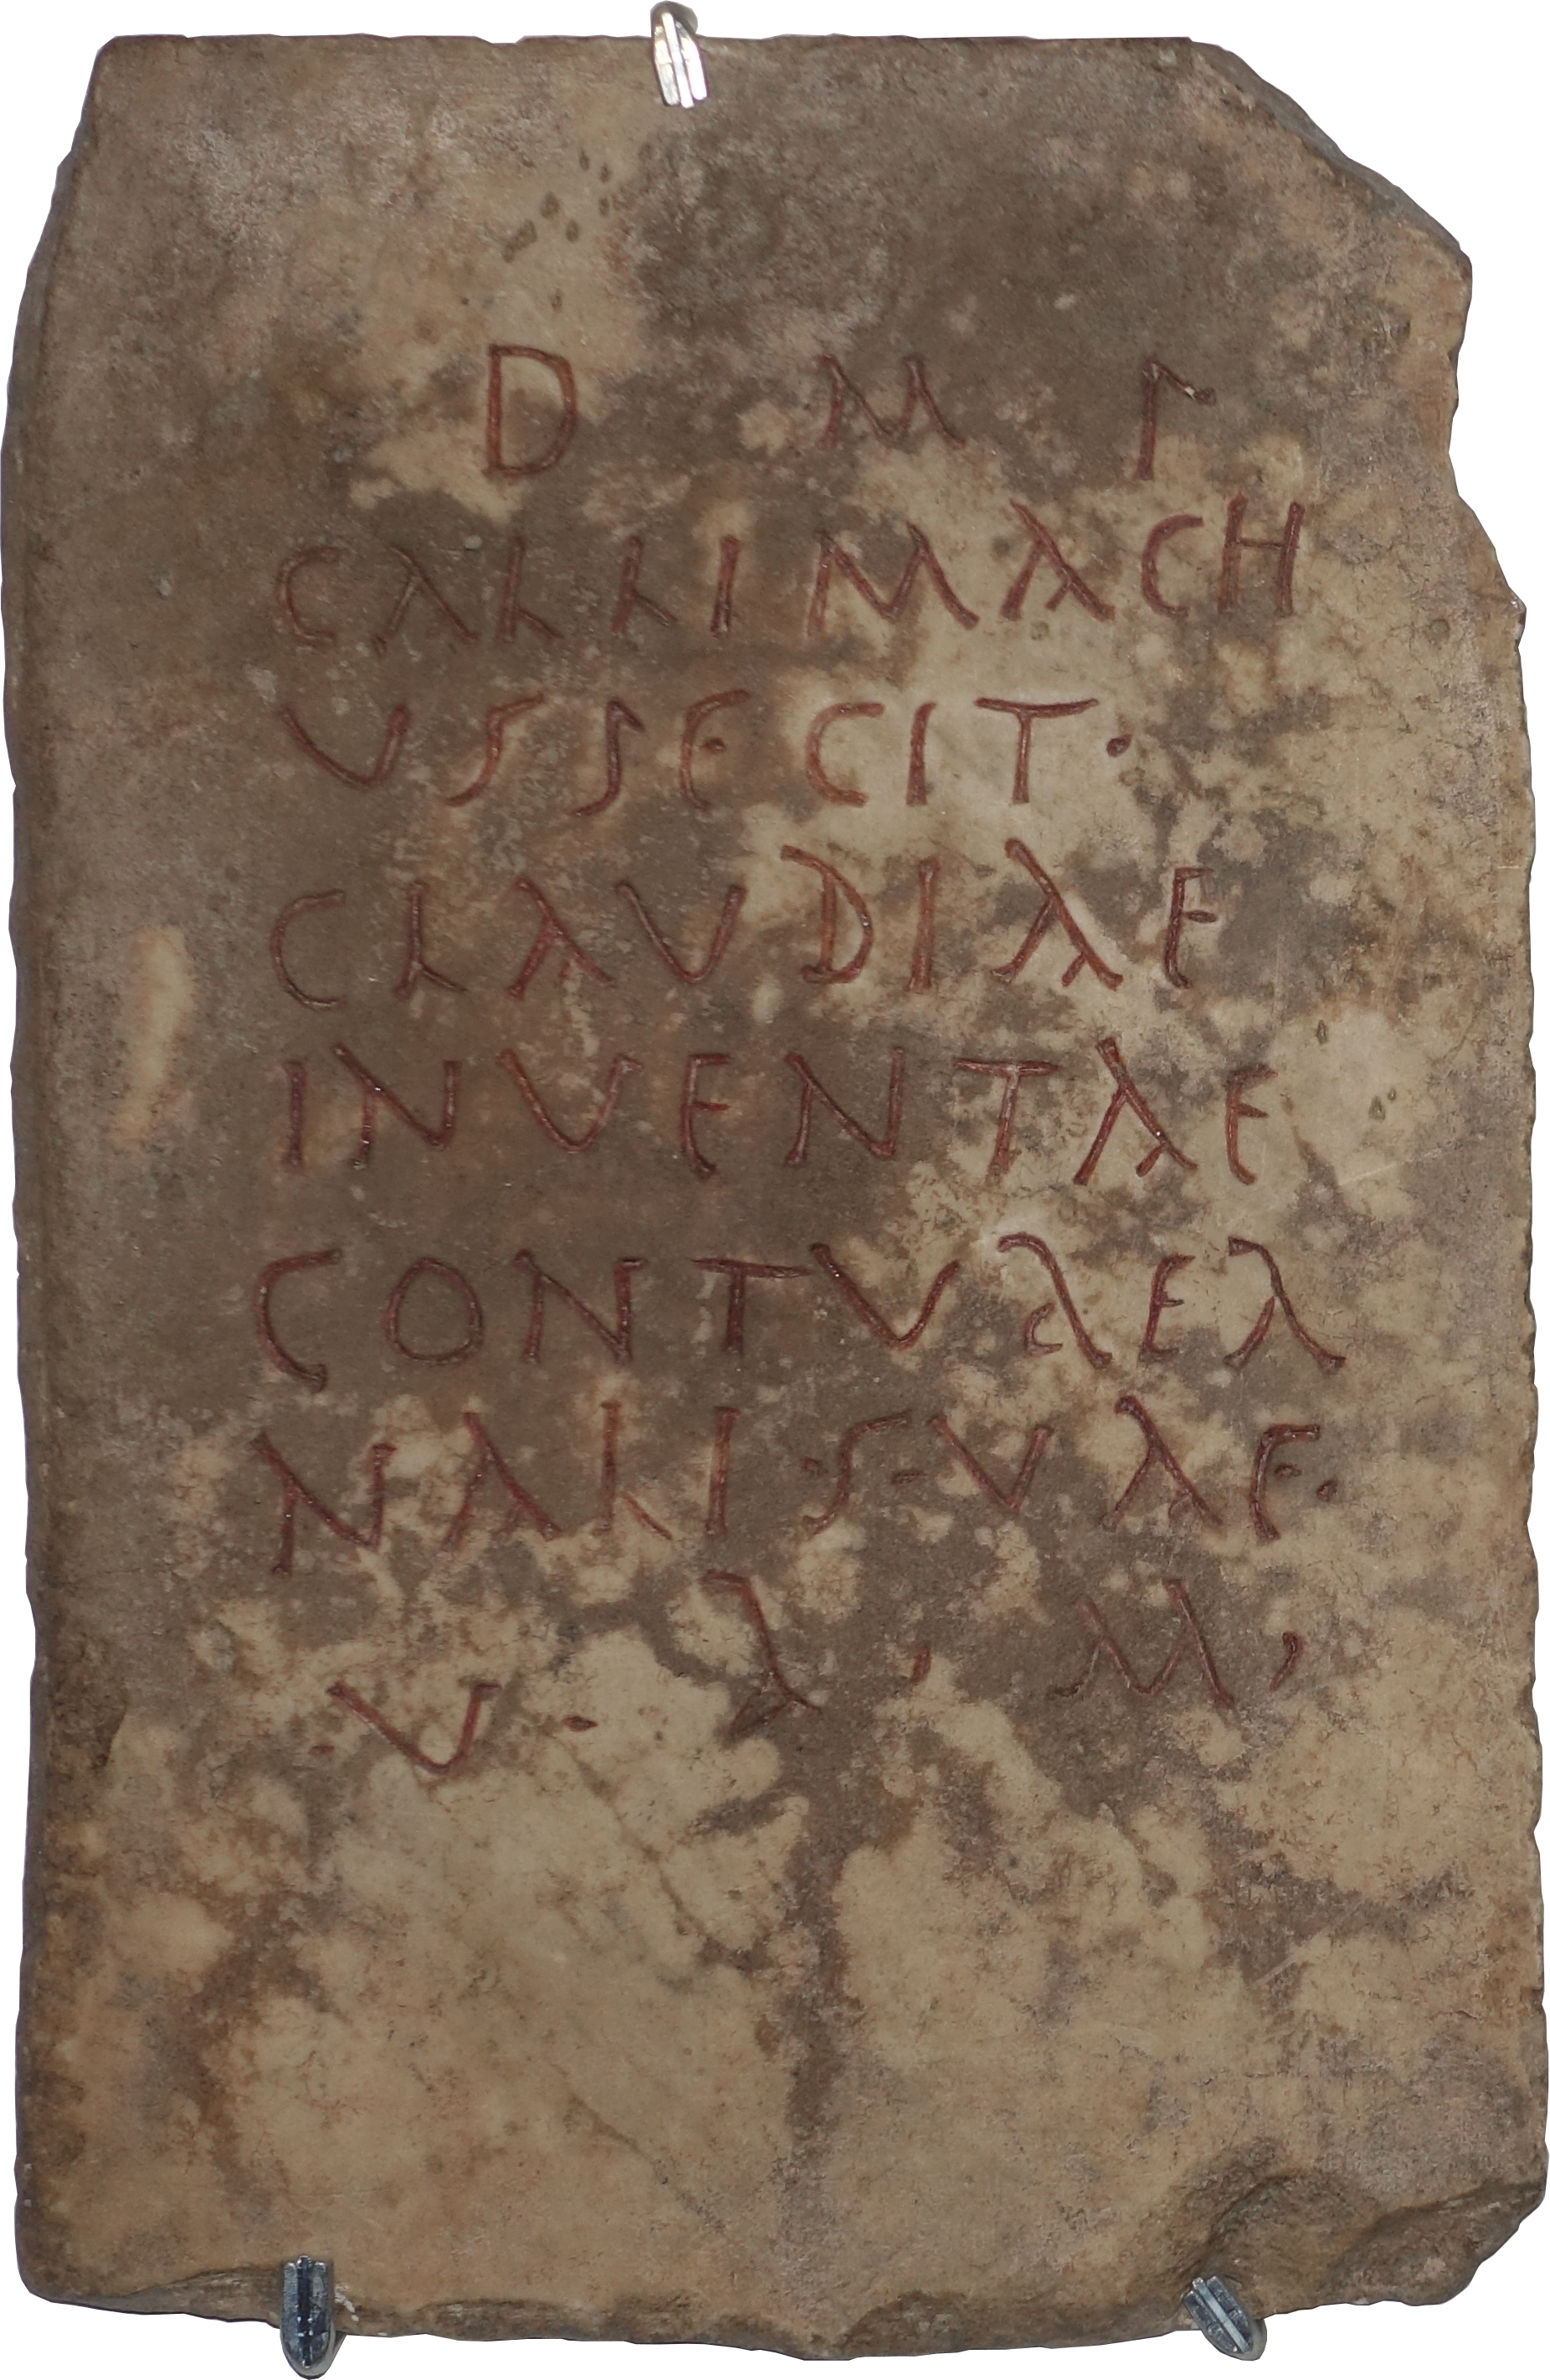 D M S
CALLIMACH
VS SECIT·
CLAVDIAE
INVENTAE
CONTVBER
NALI·S·VAE·
V · A · M ·